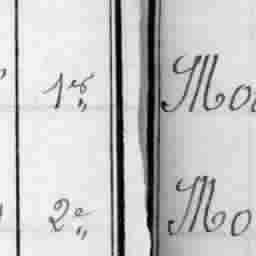 1er Mo
2e Mo